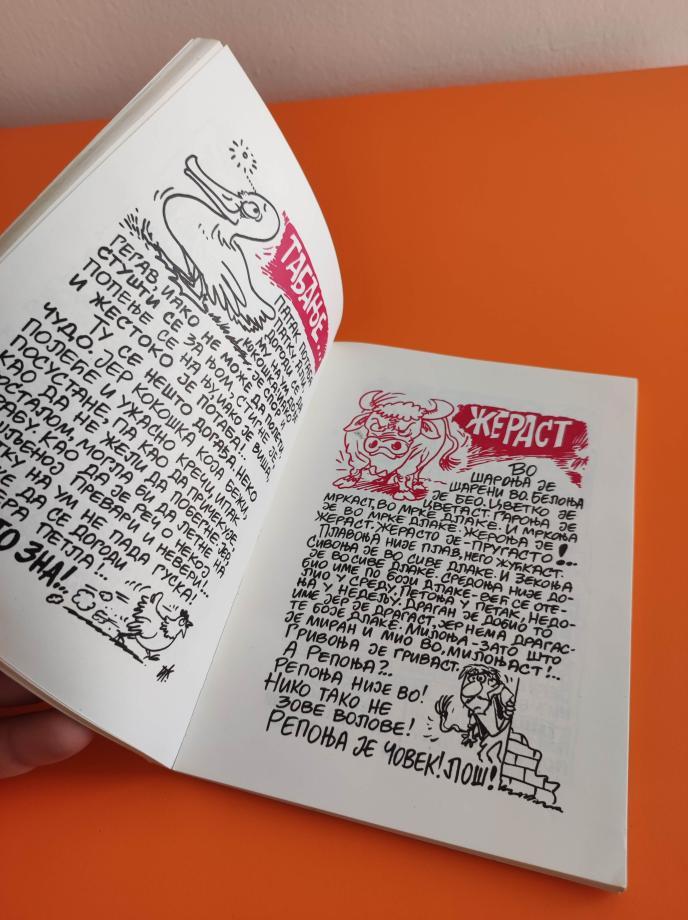 ТАБАЊЕ...
ПАТАК
ПАТКУ
ДОГОДИ СЕ
КОКОШКА НА УМ
ГЕГАВ, ИАКО НЕ МОЖЕ ДА
СТУШТИ СЕ ЗА ЊОМ, СТИГНЕ ЈЕ,
ПОПЕЊЕ СЕ НА ЊУ, ИАКО ЈЕ ВИША,
И ЖЕСТОКО ЈЕ
ТУ СЕ НЕШТО ДОГАЂА, НЕКО
ЧУДО. ЈЕР КОКОШКА КОЈА БЕЖИ,
ПОЛЕЋЕ И УЖАСНО КРЕЧИ, ИПАК
ПОСУСТАНЕ, ПА КАО ДА
КАО ДА НЕ ЖЕЛИ ДА ПОБЕГНЕ. ЈЕР,
МОГЛА БИ ДА ЛЕТНЕ НА
КАО ДА ЈЕ РЕЧ О НЕКОЈ
ПРЕВАРИ И НЕВЕРИ!...
НА УМ НЕ ПАДА ГУСКА!
ДА СЕ ДОГОДИ
ПЕТЛА!...
ЗНА!..
ЖЕРАСТ
ВО
ШАРОЊА ЈЕ
ШАРЕНИ ВО. БЕЛОЊА
ЈЕ БЕО. ЦВЕТКО ЈЕ
ЦВЕТАСТ. ГАРОЊА ЈЕ
МРКАСТ, ВО МРКЕ ДЛАКЕ. И МРКОЊА
ЈЕ ВО МРКЕ ДЛАКЕ. ЖЕРОЊА ЈЕ
ЖЕРАСТ. ЖЕРАСТО ЈЕ - ПРУГАСТО!...
ПЛАВОЊА НИЈЕ ПЛАВ, НЕГО ЖУЋКАСТ.
СИВОЊА ЈЕ ВО СИВЕ ДЛАКЕ. И ЗЕКОЊА
ЈЕ ВО СИВЕ ДЛАКЕ. СРЕДОЊА НИЈЕ ДО-
БИО ИМЕ ПО БОЈИ ДЛАКЕ - ВЕЋ СЕ ОТЕ-
ЛИО У СРЕДУ, ПЕТОЊА У ПЕТАК, НЕДО-
ЊА У НЕДЕЉУ. ДРАГАН ЈЕ ДОБИО ТО
ИМЕ ЈЕР ЈЕ ДРАГАСТ, ЈЕР НЕМА ДРАГАС-
ТЕ БОЈЕ ДЛАКЕ. МИЛОЊА - ЗАТО ШТО
ЈЕ МИРАН И МИО ВО, МИЛОЊАСТ!...
ГРИВОЊА ЈЕ ГРИВАСТ.
А РЕПОЊА?...
РЕПОЊА НИЈЕ ВО!
НИКО ТАКО НЕ
ЗОВЕ ВОЛОВЕ!
РЕПОЊА ЈЕ ЧОВЕК! ЛОШ!